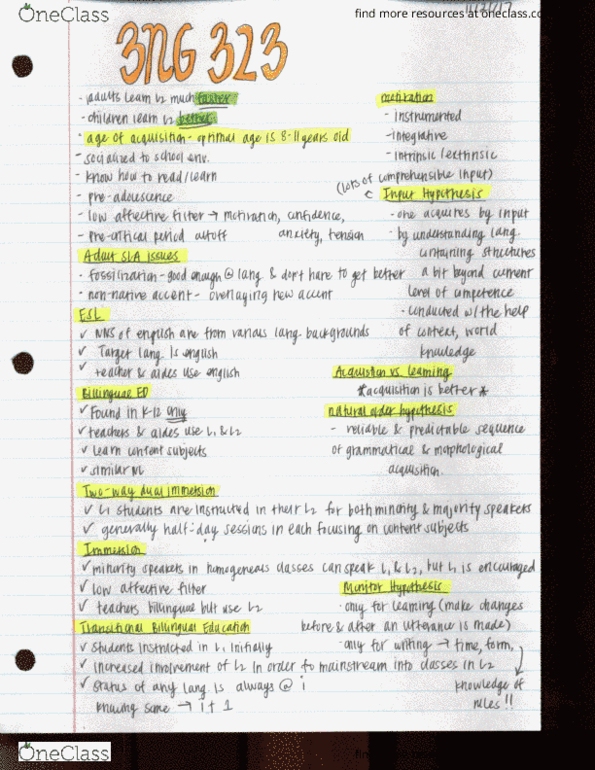 OneClass
find more resources at oneclass.co
ENG 323
- adults learn L2 much faster
- children learn L2 better
- age of acquisition - optimal age is 8-11 years old
- socialized to school env.
- know how to read/learn
- pre-adolescence
- low affective filter → motivation, confidence,
anxiety, tension
- pre-critical period cutoff
Adult SLA issues
- fossilization - good enough @ lang & don't have to get better
- non-native accent - overlaying new accent
ESL
✓ NNS of english are from various lang. backgrounds
✓ Target lang. is english
✓ teacher & aides use english
Bilingual ED
✓ Found in K-12 only
✓ teachers & aides use L1 & L2
✓ learn content subjects
✓ similar NL
motivation
- instrumental
- integrative
- intrinsic/extrinsic
(lots of comprehensible input)
Input Hypothesis
- one acquires by input
- by understanding lang.
containing structures
a bit beyond current
level of competence
- conducted w/the help
of context, world
knowledge
Acquistion vs. learning
*acquisition is better*
natural order hypothesis
- reliable & predictable sequence
of grammatical & morphological
acquisition.
Two-way dual immersion
✓ L1 students are instructed in their L2 for both minority & majority speakers
✓ generally half-day sessions in each focusing on content subjects
Immersion
✓ minority speakers in homogeneous classes can speak L1 & L2, but L1 is encouraged
✓ low affective filter
✓ teachers bilingual but use L2
Transitional Bilingual Education
✓ students instructed in L1 initially
✓ increased involvement of L2 in order to mainstream into classes in L2
✓ status of any lang. is always @ i
knowing some → i + 1
Monitor Hypothesis
- only for learning (make changes
before & after an utterance is made)
- only for writing → time, form,
knowledge of
rules!!
OneClass